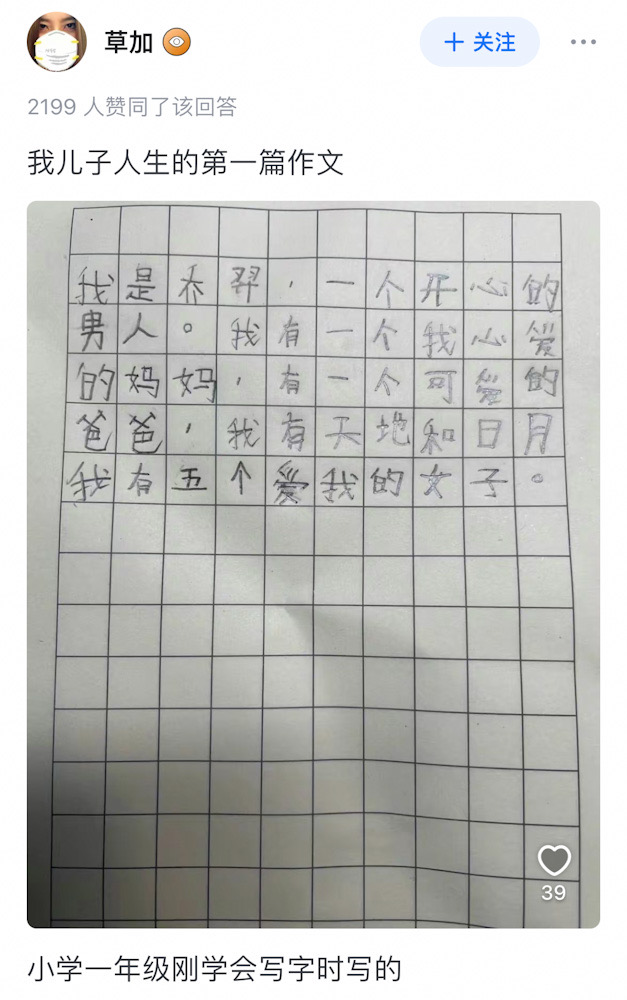 草加
+ 关注
2199 人赞同了该回答
我儿子人生的第一篇作文
我是乔羿，一个开心的
男人。我有一个我心爱
的妈妈，有一个可爱的
爸爸，我有天地和日月
我有五个爱我的女子。
39
小学一年级刚学会写字时写的